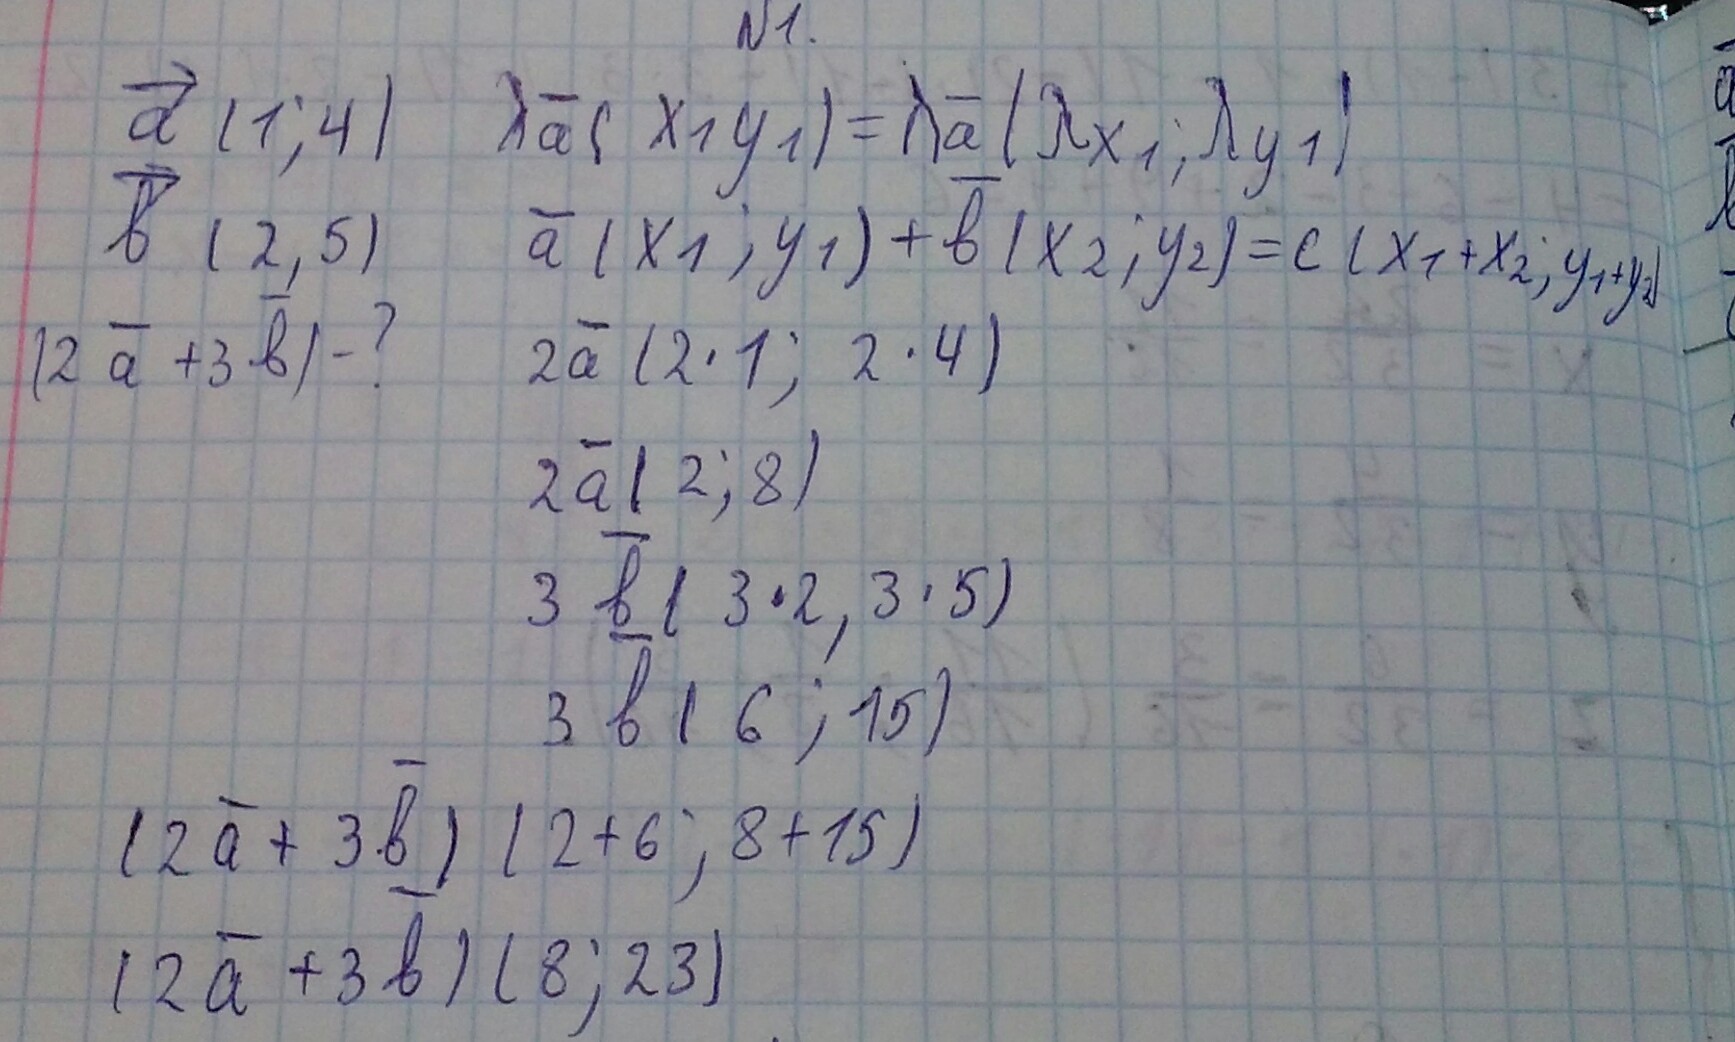 N1.
a⃗ (1;4) λa̅( x₁y₁)=λa̅(λx₁;λy₁)
b⃗ (2,5) a̅(x₁;y₁)+b̅(x₂;y₂)=c(x₁+x₂;y₁+y₂)
(2a̅+3b̅)-? 2a̅(2·1; 2·4)
2a̅(2;8)
3b̅(3·2,3·5)
3b̅(6;15)
(2a̅+3b̅)(2+6;8+15)
(2a̅+3b̅)(8;23)